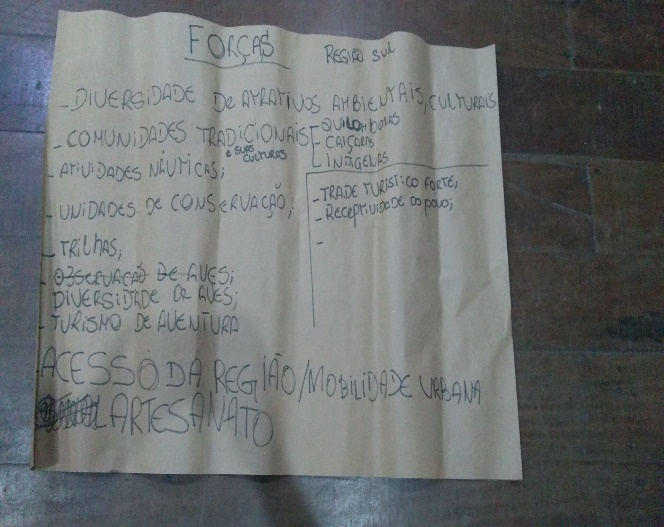 FORÇAS REGIÃO SUL
- DIVERSIDADE DE ATRATIVOS AMBIENTAIS, CULTURAIS
- COMUNIDADES TRADICIONAIS E SUAS CULTURAS
QUILOMBOLAS
CAIÇARAS
INDÍGENAS
- ATIVIDADES NÁUTICAS;
- UNIDADES DE CONSERVAÇÃO;
- TRILHAS,
- OBSERVAÇÃO DE AVES;
DIVERSIDADE DE AVES;
- TURISMO DE AVENTURA
- TRADE TURÍSTICO FORTE;
- RECEPTIVIDADE DO POVO;
-
ACESSO DA REGIÃO/MOBILIDADE URBANA
ARTESANATO